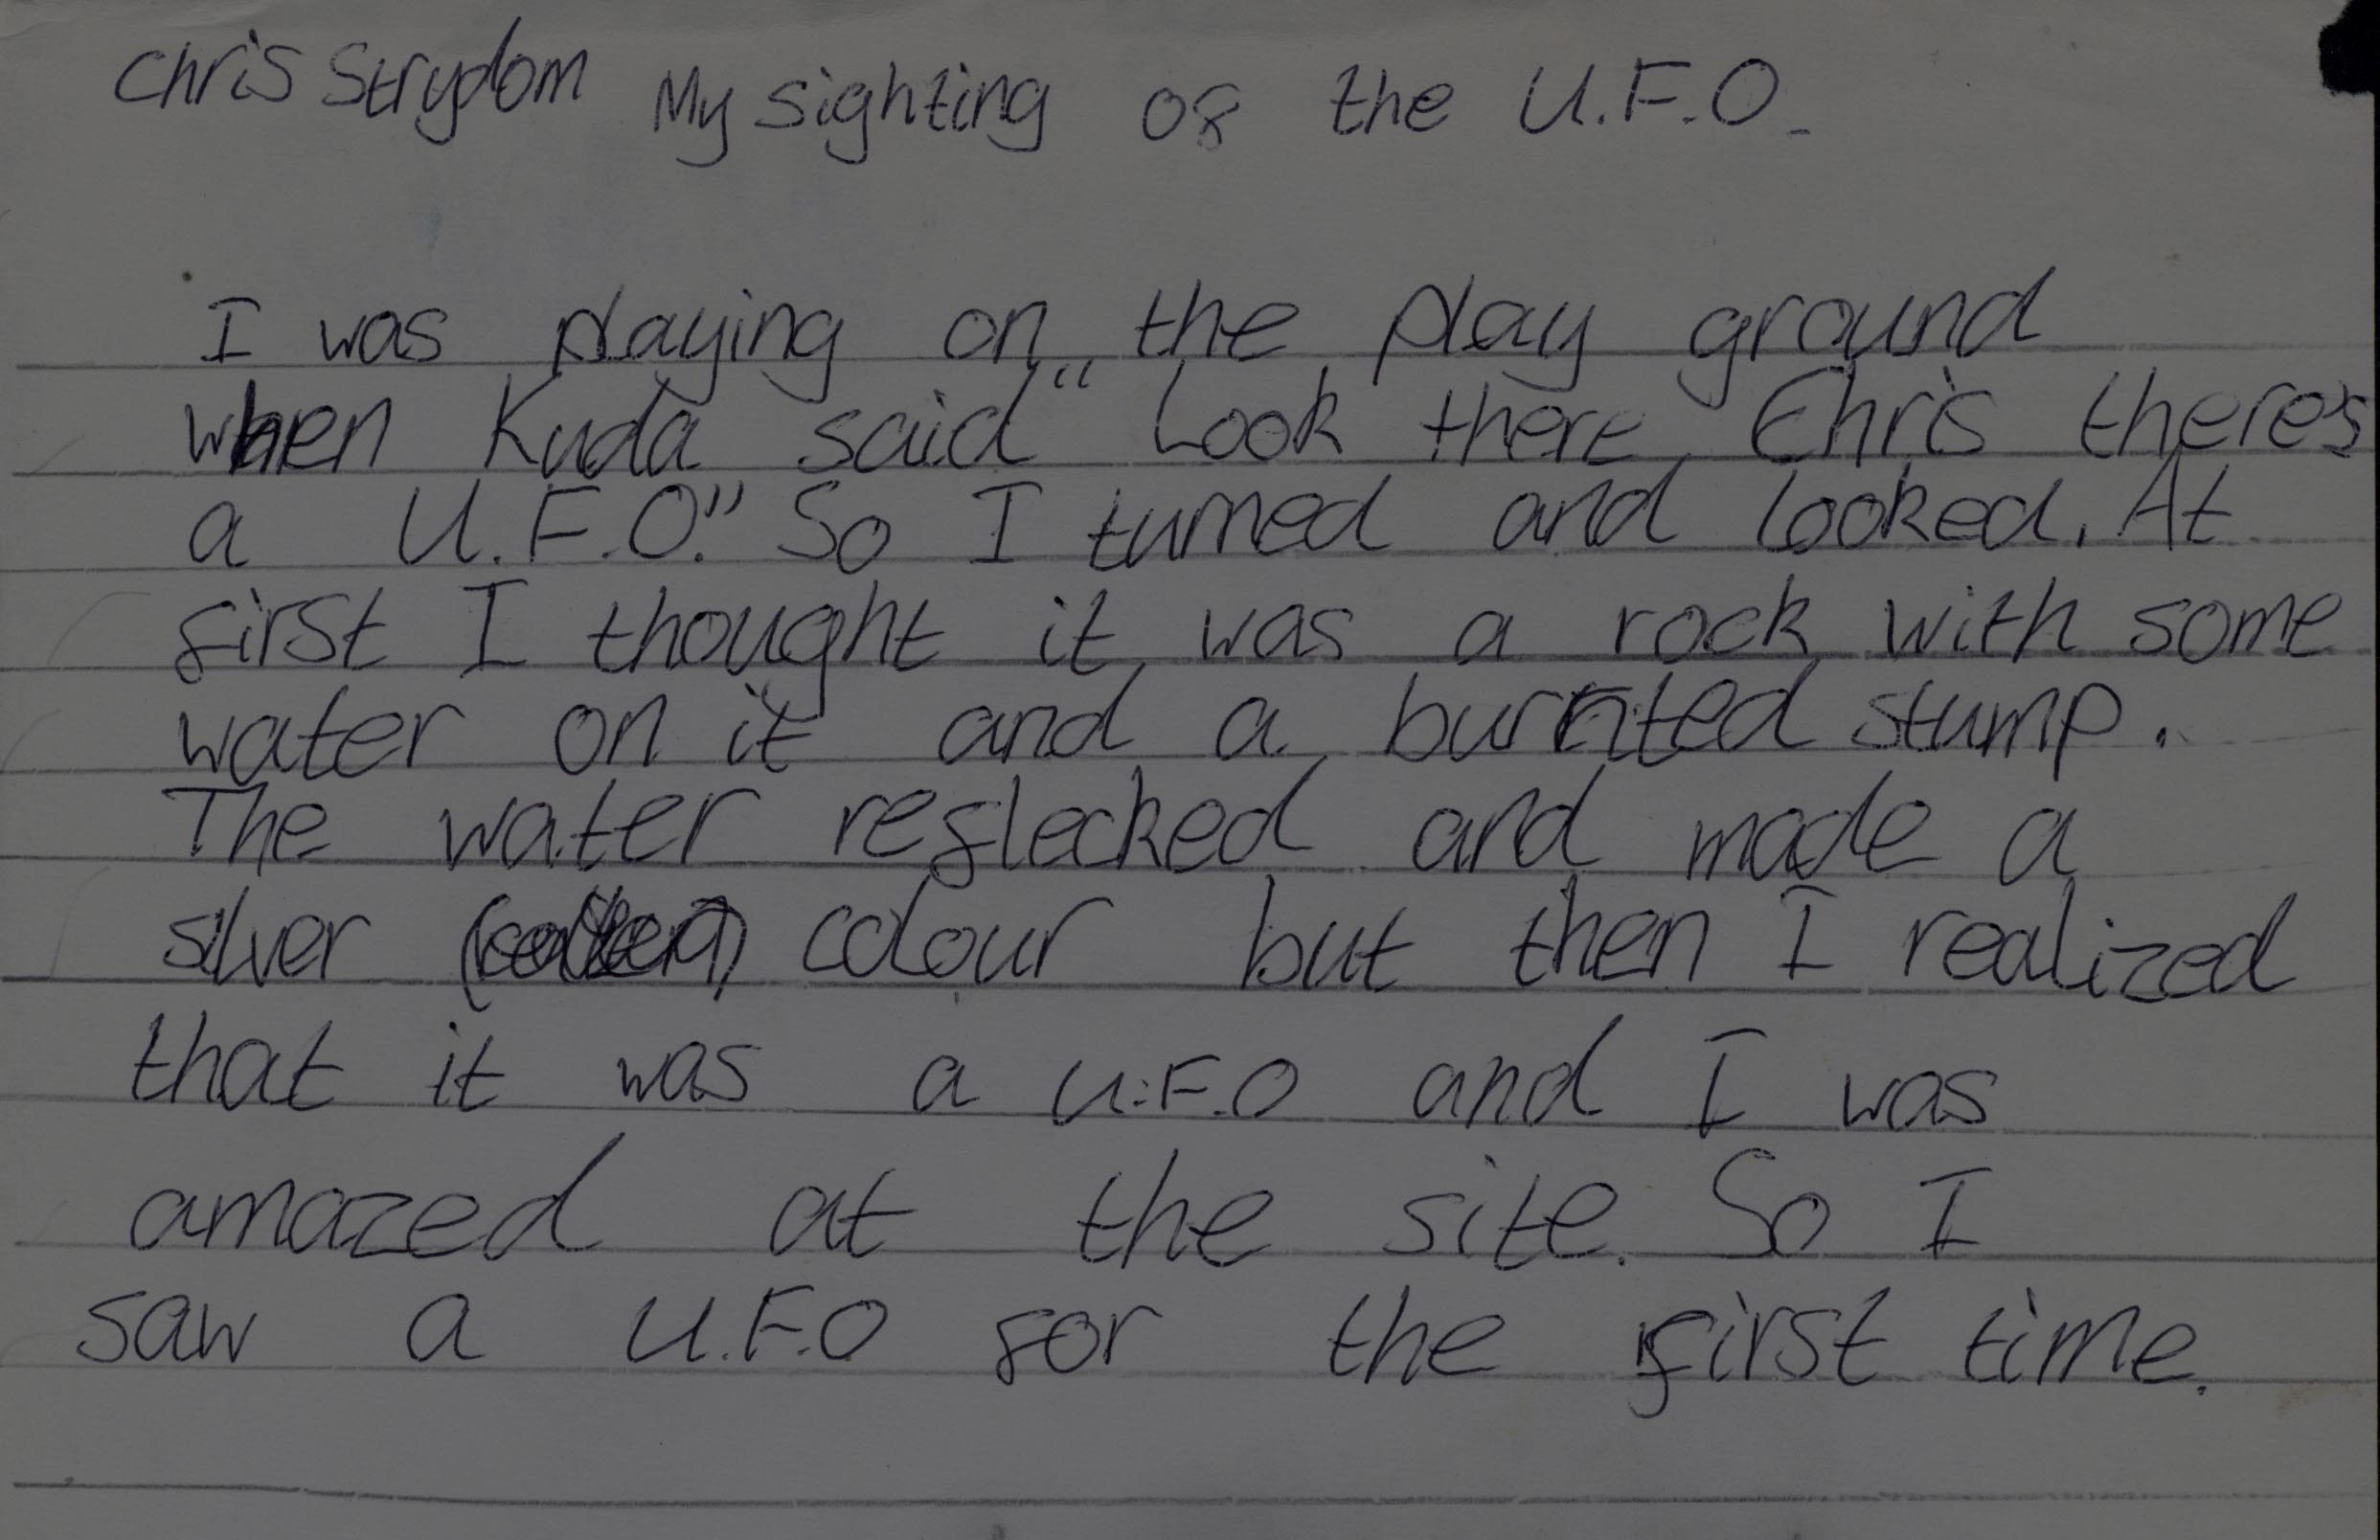 Chris Strydom My sighting of the U.F.O.
I was playing on the play ground
when Kuda said "Look there Chris there's
a U.F.O." So I turned and looked. At
first I thought it was a rock with some
water on it and a burnted stump.
The water reflecked and made a
silver colour but then I realized
that it was a U.F.O and I was
amazed at the site. So I
saw a U.F.O for the first time.